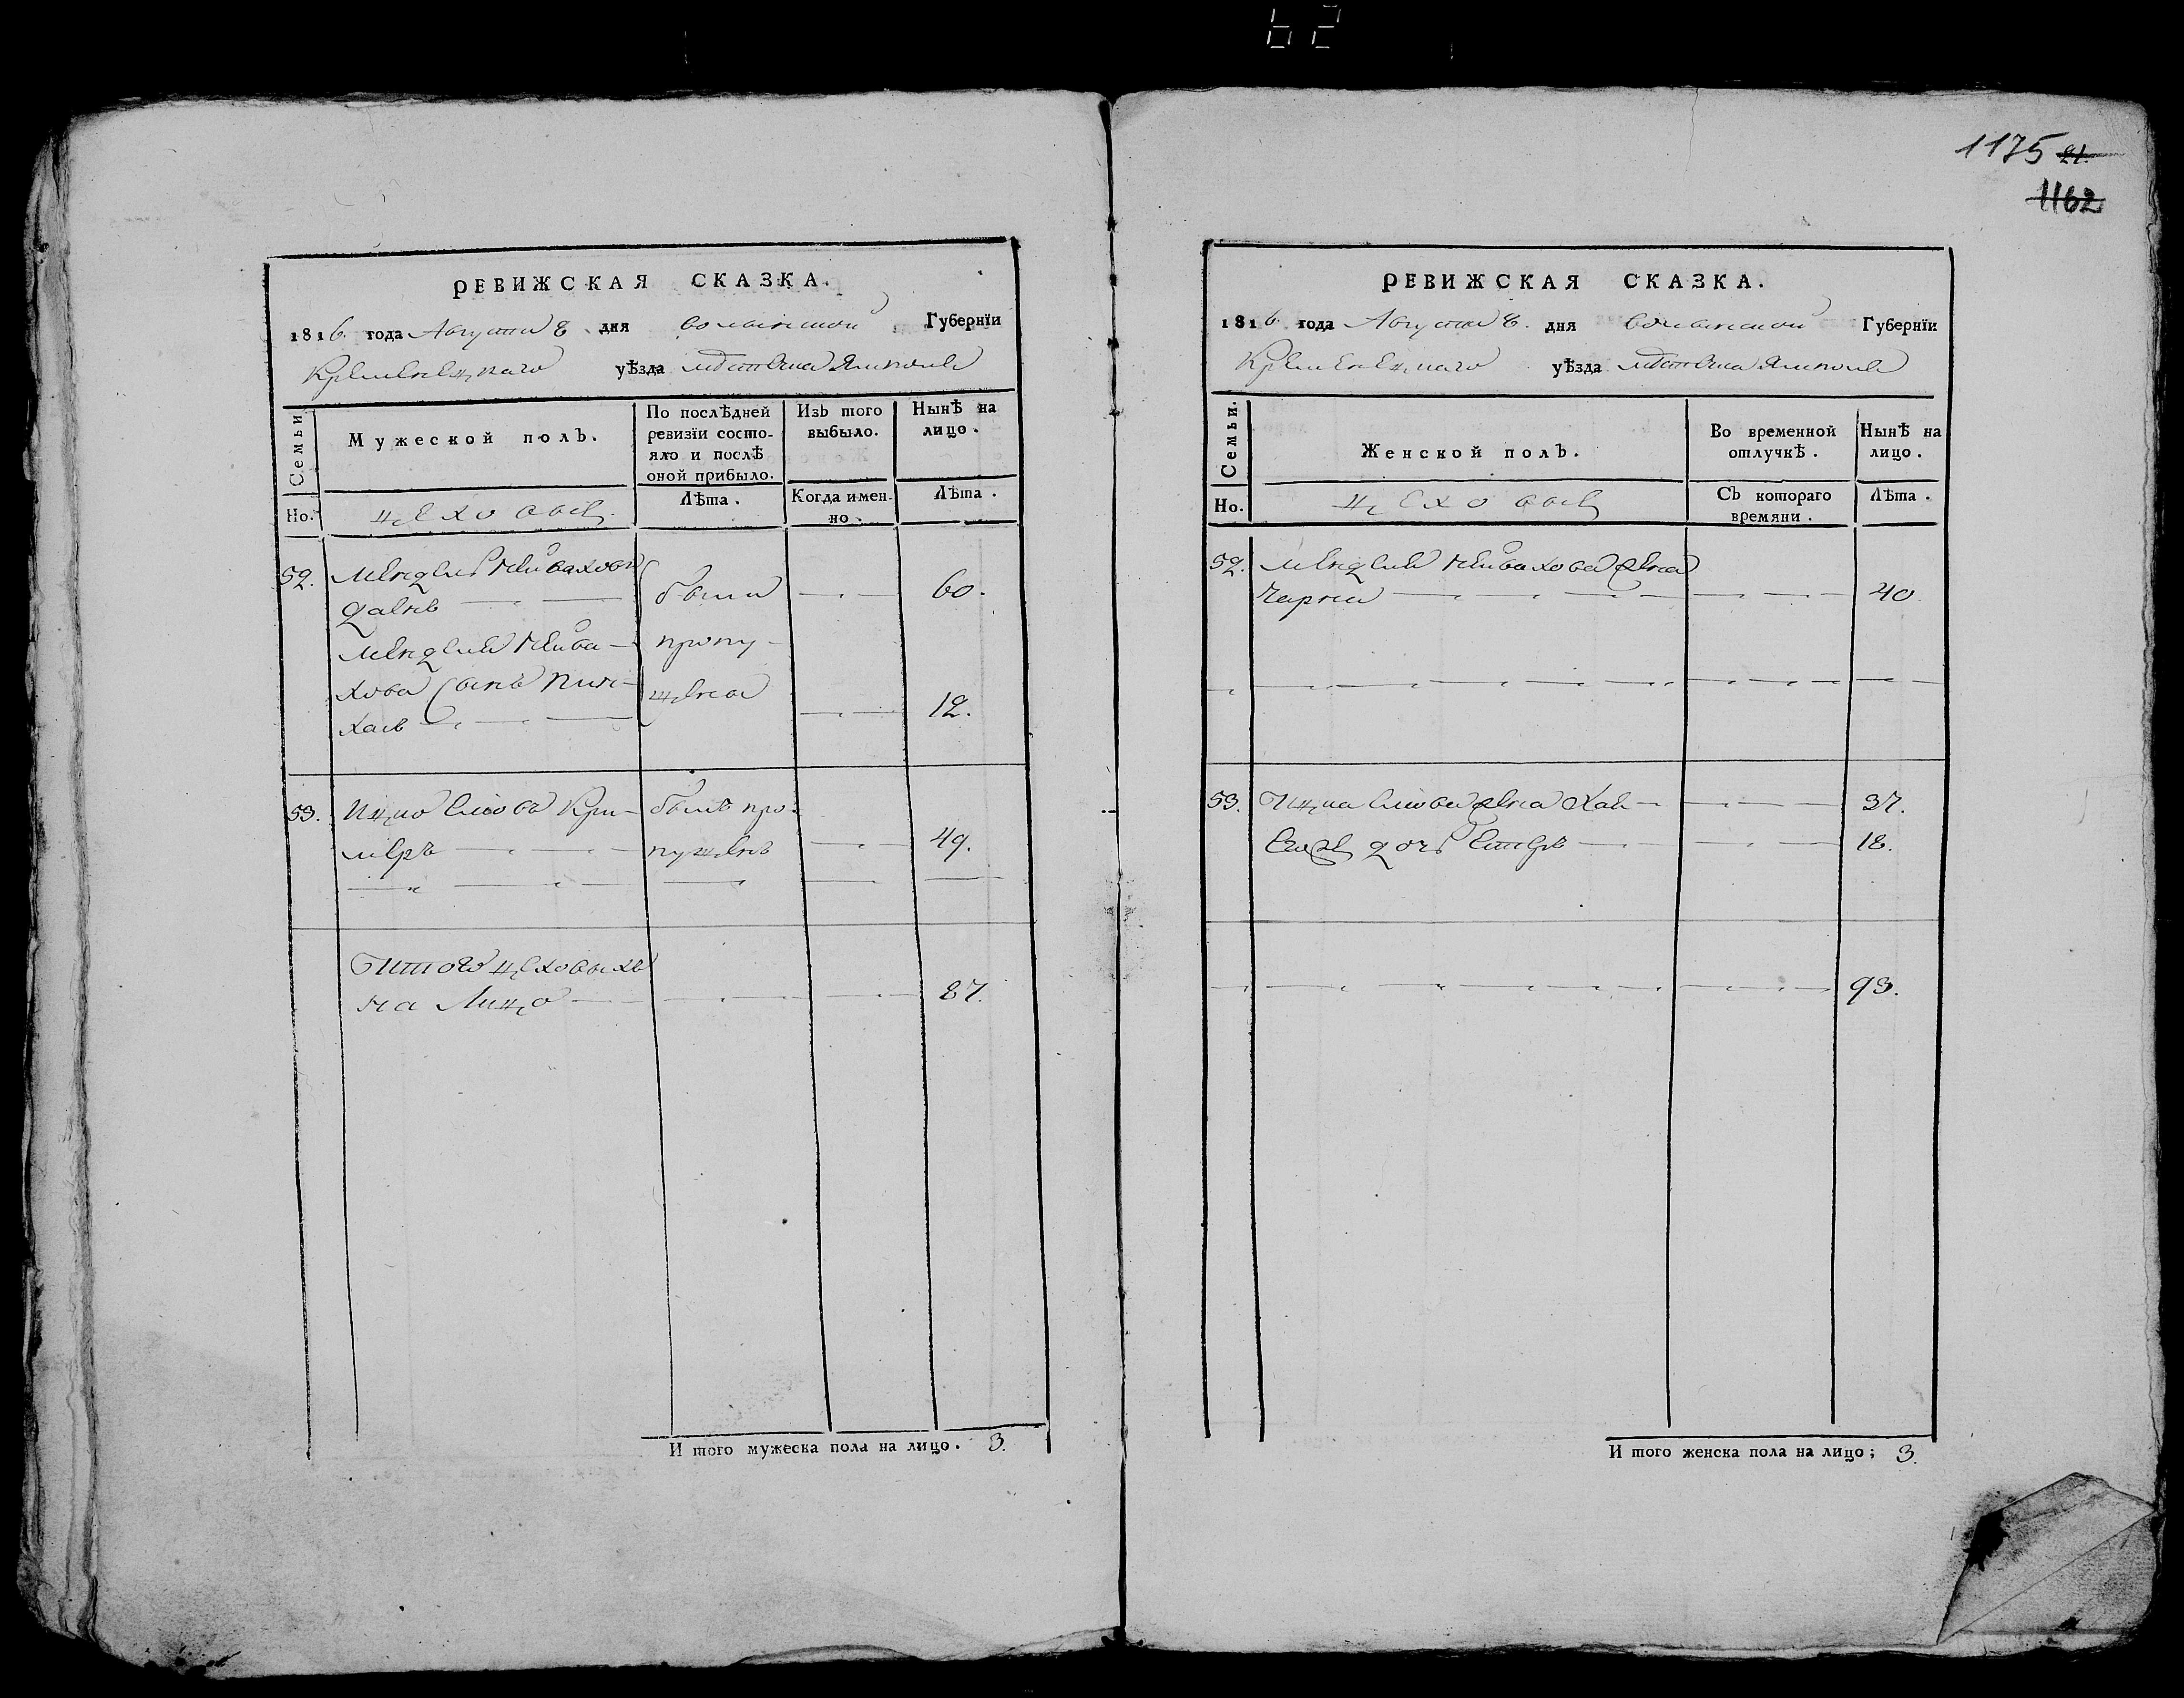 62
1175 21.
1162
РЕВИЖСКАЯ СКАЗКА.
1816. года Августа 8 дня волынской Губернїи
Кременецкаго уѣзда мѣстечка Ямполя
Семьи
Мужеской полъ.
По послѣдней ревизїи состо-
яло и послѣ
оной прибыло.
Изъ того
выбыло.
Нынѣ на
лицо.
Но.
цеховые
Лѣта.
Когда имен-
но.
Лѣта.
52. Мендель
данъ были 60.
Мендел пропу-
хова сынъ пин- щена
хасъ 12.
53. Ицко былъ про-
меръ пущенъ 49.
Итого цеховыхъ
на лицо 87.
И того мужеска пола на лицо. 3.
РЕВИЖСКАЯ СКАЗКА.
1816. года Августа 8. дня волынской Губернїи
Кременецкаго уѣзда мѣстечка Ямполя
Семьи.
Женской полъ.
Во временной
отлучкѣ.
Нынѣ на
лицо.
Но.
цеховые
Съ котораго
времяни.
Лѣта.
52. жена
Чарна 40
53. Ицка жена Хая 37.
Его дочь Естеръ 18.
93.
И того женска пола на лицо; 3.